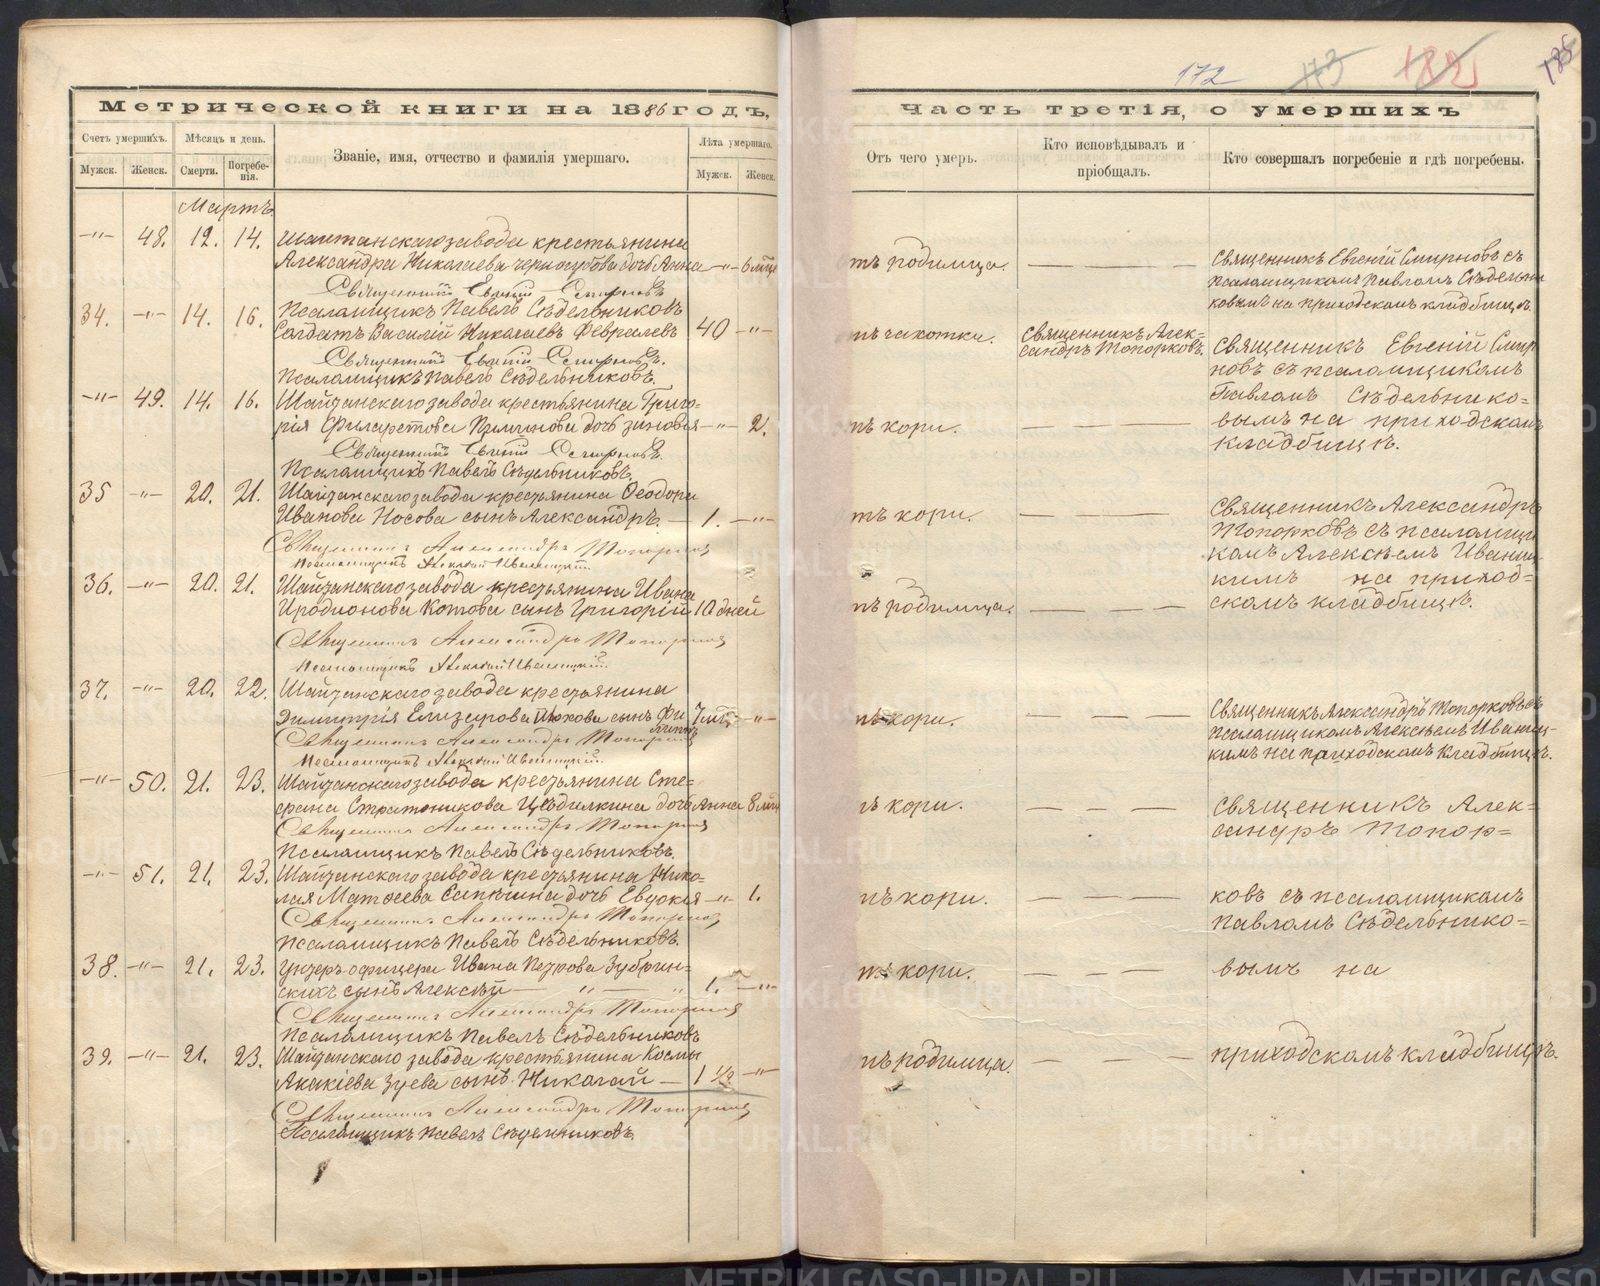 172 113 182 185
Метрической книги на 1886 годъ,
Счетъ умершихъ.
Мѣсяцъ и день.
Званіе, имя, отчество и фамилія умершаго.
Лѣта умершаго.
Мужск.
Женск.
Смерти.
Погребенія.
Мужск.
Женск.
Мартъ
-"- 48. 12. 14. Шайтанскаго завода крестьянина
Александра Николаева Черногубова дочь Анна -"- 6 мѣс
Священникъ Евгеній Смирновъ
Псаломщикъ Павелъ Сѣдельниковъ
34. -"- 14. 16. Солдатъ Василій Николаевъ Февралевъ 40 -"-
Священникъ Евгеній Смирновъ.
Псаломщикъ Павелъ Сѣдельниковъ.
-"- 49. 14. 16. Шайтанскаго завода крестьянина Григо-
рія Филаретова дочь Зиновія -"- 2.
Священникъ Евгеній Смирновъ.
Псаломщикъ Павелъ Сѣдельниковъ.
35 -"- 20. 21. Шайтанскаго завода крестьянина Ѳеодора
Иванова Носова сынъ Александръ. 1. -"-
Священникъ Александръ Топорковъ
Псаломщикъ Алексѣй Иваницкій
36. -"- 20. 21. Шайтанскаго завода крестьянина Ивана
Иродионова Котова сынъ Григорій 10 дней
Священникъ Александръ Топорковъ
Псаломщикъ Алексѣй Иваницкій
37. -"- 20. 22. Шайтанскаго завода крестьянина
Димитрія Елизарова сынъ Фи 7 мѣс -"-
липпъ
Священникъ Александръ Топорковъ
Псаломщикъ Алексѣй Иваницкій
-"- 50. 21. 23. Шайтанскаго завода крестьянина Сте-
фана Стратоникова Цедилкина дочь Анна 8 мѣс
Священникъ Александръ Топорковъ
Псаломщикъ Павелъ Сѣдельниковъ.
-"- 51. 21. 23. Шайтанскаго завода крестьянина Нико-
лая Матѳеева Сапкина дочь Евдокія -"- 1.
Священникъ Александръ Топорковъ
Псаломщикъ Павелъ Сѣдельниковъ.
38. -"- 21. 23. Унтеръ-офицера Ивана Петрова Зубрин-
скихъ сынъ Алексѣй 1. -"-
Священникъ Александръ Топорковъ
Псаломщикъ Павелъ Сѣдельниковъ
39. -"- 21. 23. Шайтанскаго завода крестьянина Космы
Акакіева Зуева сынъ Николай 1 1/2 -"-
Священникъ Александръ Топорковъ
Псаломщикъ Павелъ Сѣдельниковъ.
Часть третія, о умершихъ
Отъ чего умеръ.
Кто исповѣдывалъ и
пріобщалъ.
Кто совершалъ погребеніе и гдѣ погребены.
тъ родимца.
Священникъ Евгеній Смирновъ съ
псаломщикомъ Павломъ Сѣдельни
ковымъ на приходскомъ кладбищѣ.
тъ чахотки. Священникъ Алек-
сандръ Топорковъ.
Священникъ Евгеній Смир
новъ съ псаломщикомъ
Павломъ Сѣдельнико-
тъ кори. вымъ на приходскомъ
кладбищѣ.
тъ кори. Священникъ Александръ
Топорковъ съ псаломщи
комъ Алексѣемъ Иваниц
кимъ на приход-
тъ родимца. скомъ кладбищѣ.
тъ кори. Священникъ Александръ Топорковъ съ
псаломщикомъ Алексѣемъ Иваниц-
кимъ на приходскомъ кладбищѣ.
тъ кори. Священникъ Алек-
сандръ Топор-
тъ кори. ковъ съ псаломщикомъ
Павломъ Сѣдельнико-
тъ кори. вымъ на
тъ родимца. приходскомъ кладбищѣ.
METRIKI.GASO-URAL.RU